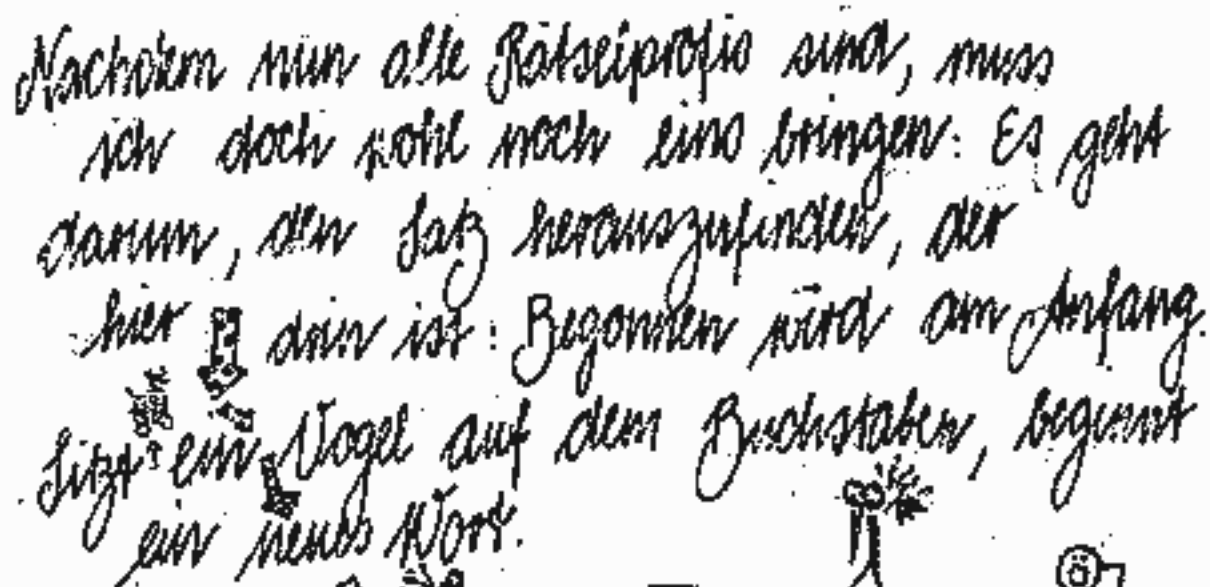 Nachdem nun alle Rätselprofis sind, muss
ich doch wohl noch eins bringen: Es geht
darum, den Satz herauszufinden, der
hier drin ist: Begonnen wird am Anfang.
Sitzt ein Vogel auf dem Buchstaben, beginnt
ein neues Wort.